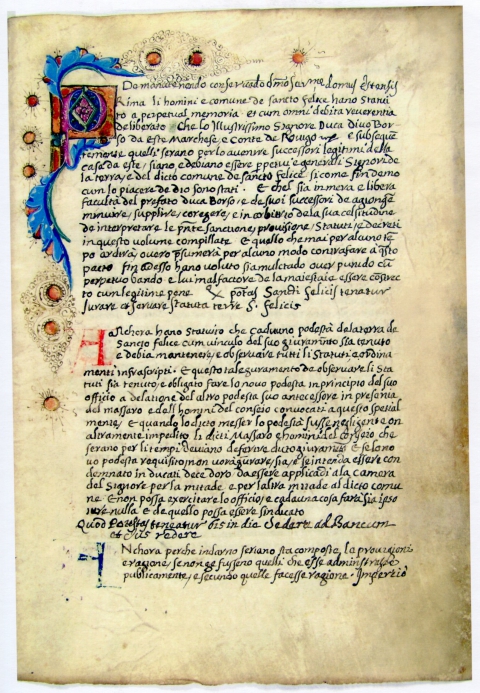 De manutenendo conservando dominio Domus Estensis
Prima li homini e comune de sancto felice hano statui
to a perpetual memoria et cum omni debita reverentia
deliberato che lo Illustrissimo Signore Duca divo Bor
so da Este Marchese e Conte de Rovigo e subsequen
temente quelli serano per lo avenire successori legitimi de la
casa da este siano e debiano essere ppetui e generali Signori de
la terra e del dicto comune de sancto felice si come fin demo
cum lo piacere de dio sono stati. E chel sia in mera e libera
faculta del prefato duca Borso e de suoi successori de agionge
minuire, supplire, coregere, e in arbitrio de la sua celsitudine
de interpretare le pnte sanctione, provisione, Statuti, e decreti
in questo volume compillate E quello che mai per alcuno te
po ardira over psumera per alcuno modo contrafare a qsto
pacto fin adesso hano voluto sia mulctado over punido cu
perpetuo bando e lui malfactore de la maiesta e essere constrec
to cun legitine pene potas Sancti felicis tenatur
Iurare observare statuta terre S. felicis
Anchora hano statuito che caduuno podestà de la terra de
Sancto felice cum vinculo del suo giuramento sia tenuto
e debia mantenere, e observare tutti li Statuti e ordina
menti infrascripti. E questo tale guramento de observare li Sta
tuti sia tenuto, e obligato fare lo novo podesta in principio del suo
officio a delatione del altro podesta suo antecessore in presentia
del massaro e dell homini del conseio convocati a questo spetial
mente, E quando lo dicto messer lo podesta fusse negligente o n
altramente impedito. li dicti Massaro e homini del conseio che
serano per li tempi deviano deferire dicto giuramento E se lo no
vo podesta requisito non vora giurare, sia, e se intenda essere con
demnato in ducati dece doro da essere applicadi a la camera
del Signore per la mitade e per laltra mitade al dicto comu
ne E non possa exercitare lo officio, e cadauna cosa fara sia ipso
iure nulla E de quello possa essere sindicato
Quod Potestas teneatur bis in die Sedere ad Bancum
et Ius redere
Anchora perche indarno seriano sta composte, le provisioni
e ragione, se non ge fusseno quelli che esse administrasse
publicamente, e secundo quelle facesse ragione. Imperciò